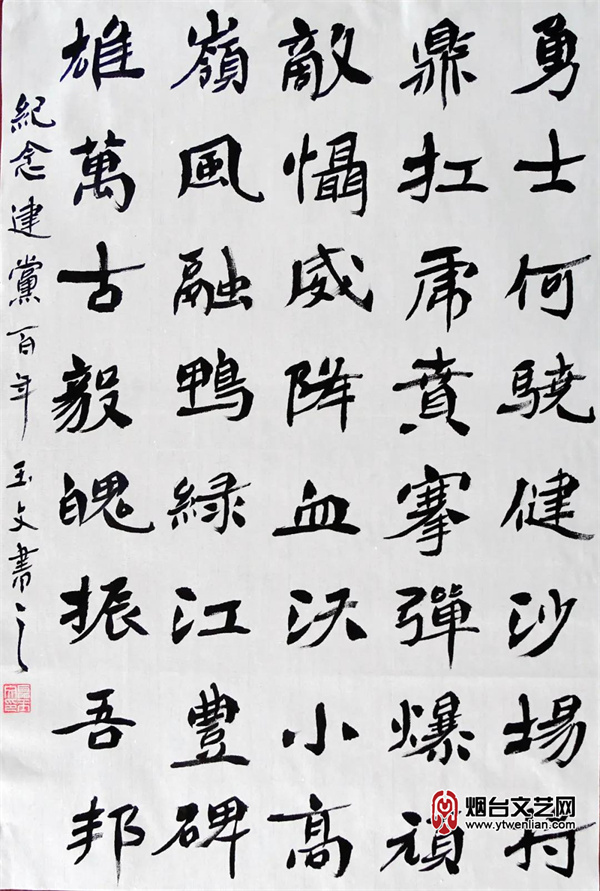 勇士何驍健沙場
鼎扛虎賁搴彈爆頑
敵懾威降血沃小高
嶺風融鴨綠江豐碑
雄萬古毅魄振吾邦
紀念建黨百年 玉文書之
烟台文艺网
www.ytwenlian.com